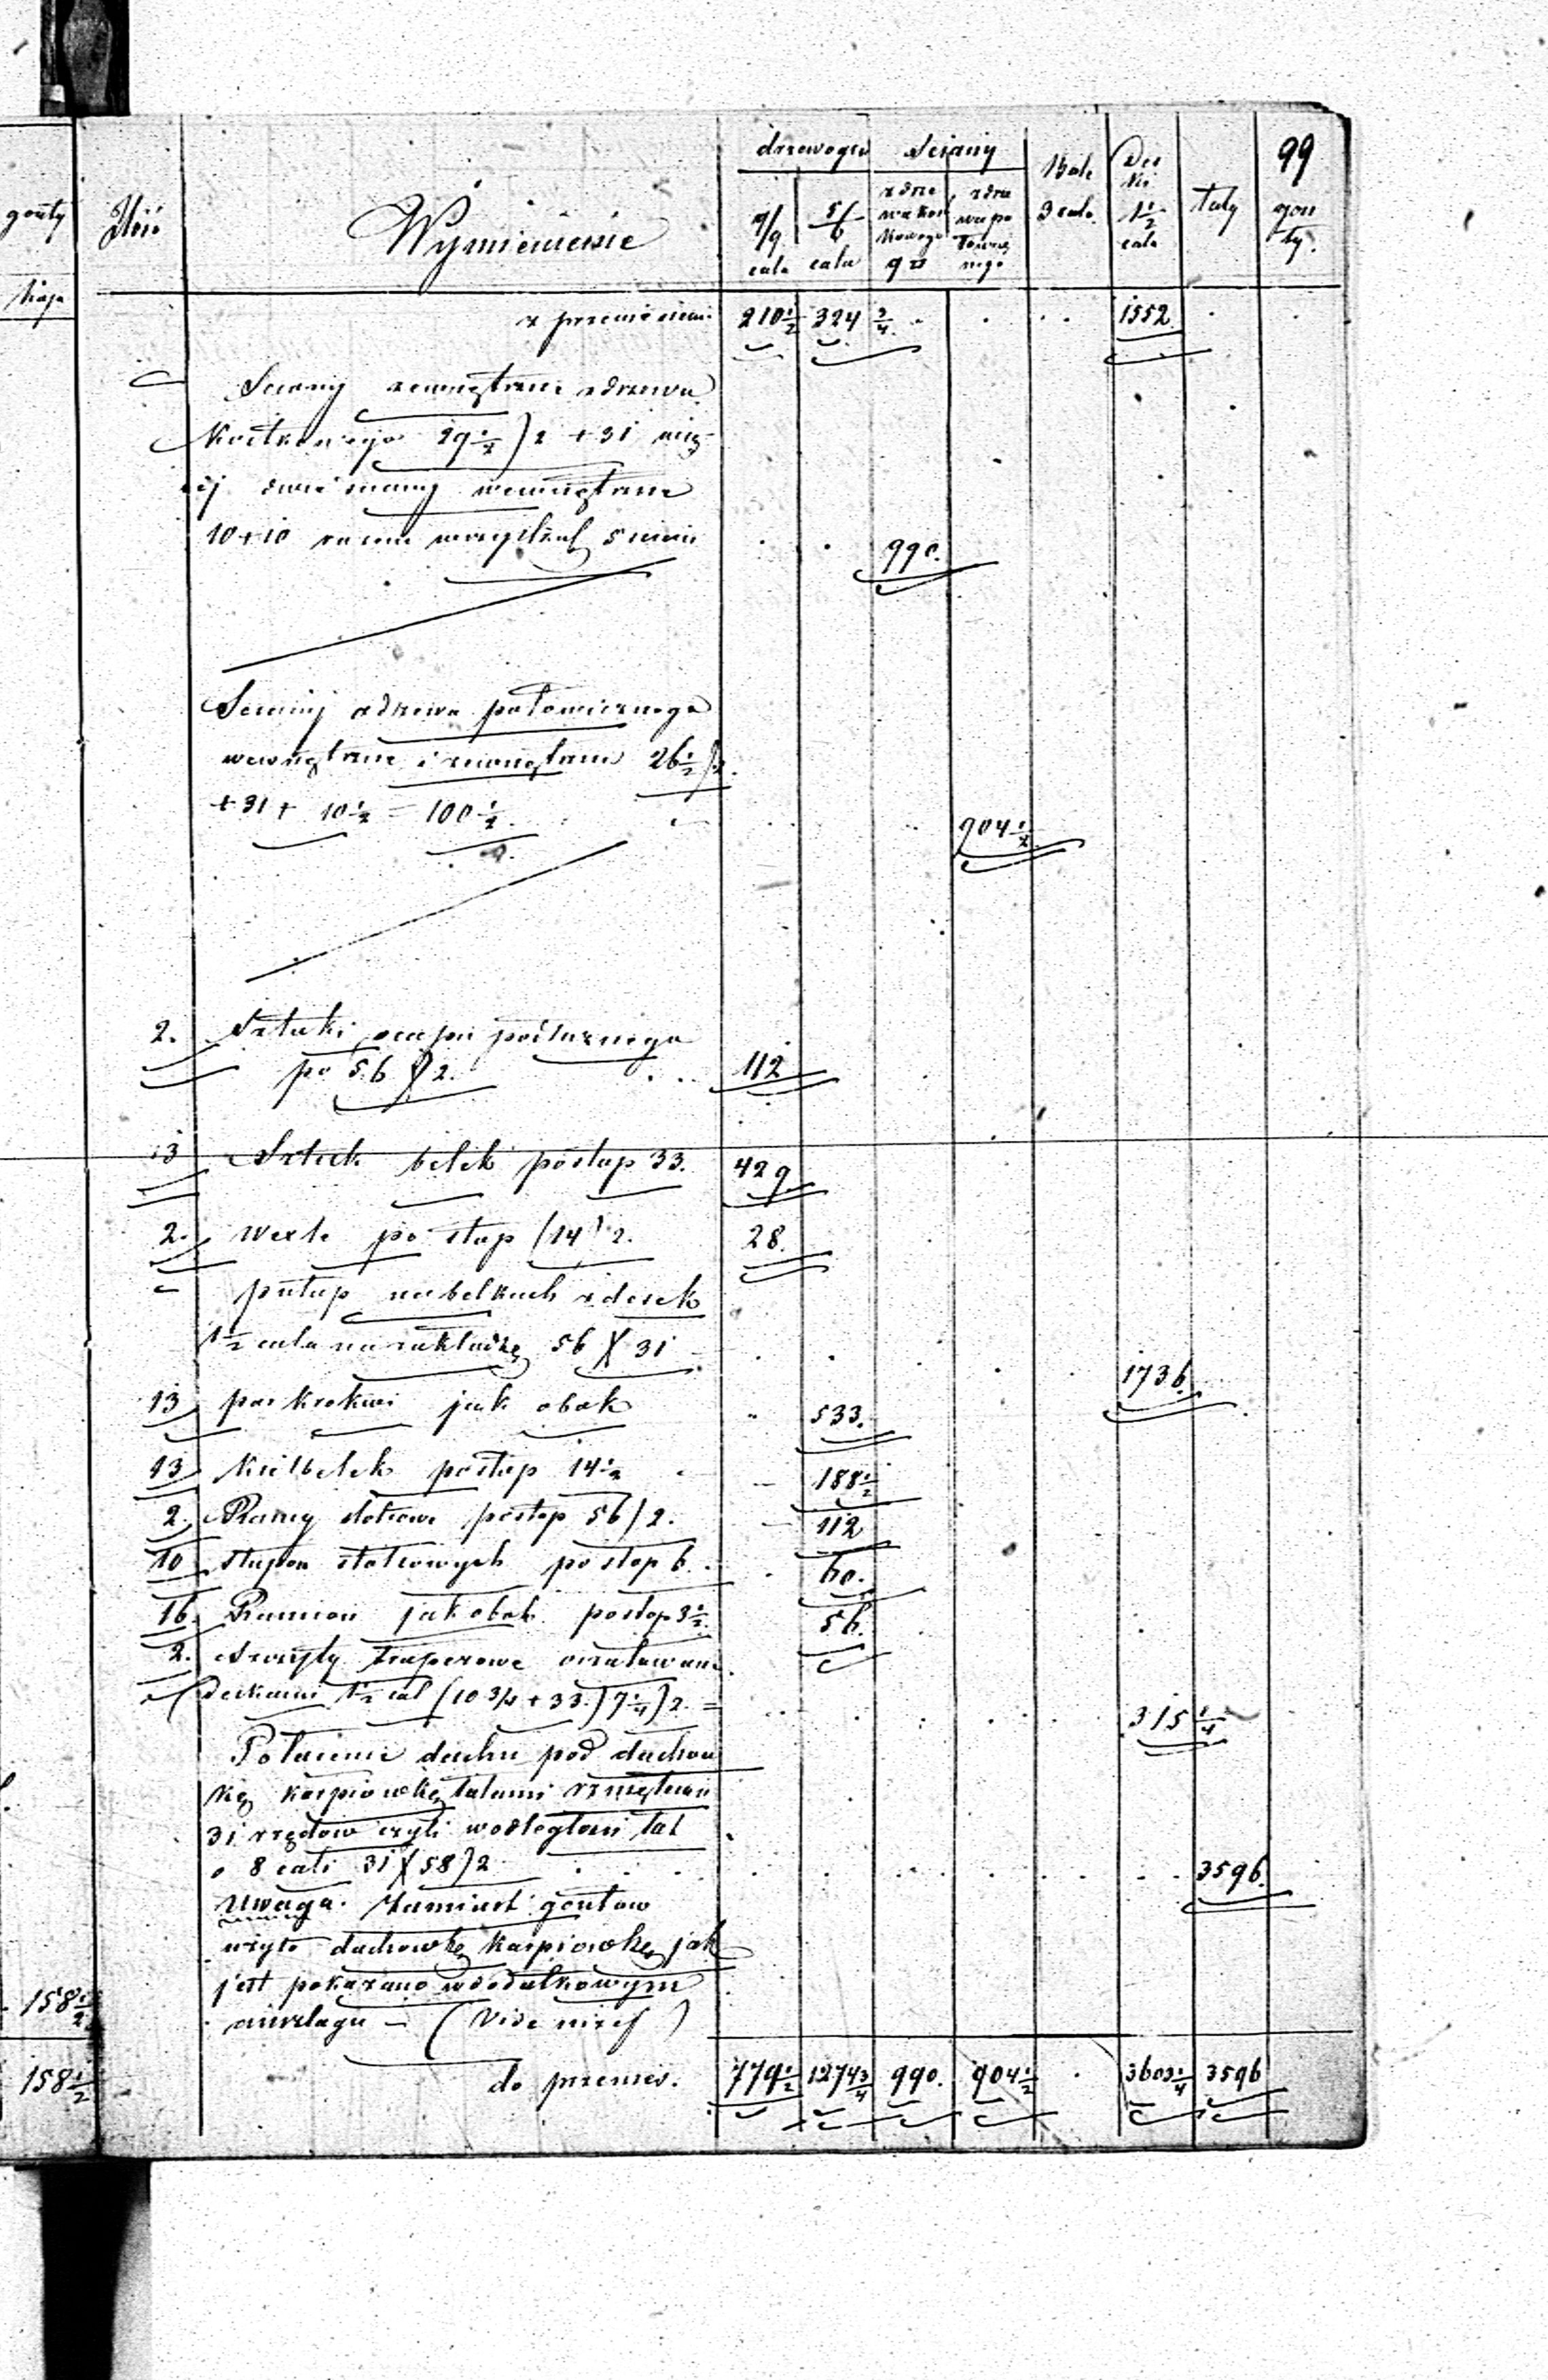 99
gonty
Ilość
Wymienienie
drzewo grub
Sciany
7/9 cala
5/6 cala
z drze wa kost kowego
z drze wa poło wiczne nego
Bale 3 cale
Des ki 1 1/2 cala
łaty
gon ty.
z przeniesienia 210 1/2 324 3/4 1552
Sciany zewnętrzne z drzewa
kostkowego 29 1/2)2 + 31
dwie sciany wewnętrzne
10 + 10 razem 990.
Sciany z drzewa połowicznego
wewnętrzne i zewnętrzne 26 1/2)2.
+ 31 + 10 1/2 = 100 1/2. 904 1/2
2. Sztuki oczepu podłużnego
po 56)(2. 112
13 Sztuk belek po stup 33. 429
2. Wexle po stup (14)2. 28.
pułap na belkach z desek
1 1/2 cala na zakładkę 56)(31 1736.
13 par krokwi jak obok 533.
13 po stup 14 1/2 188 1/2
2. Ramy stolcowe po stop 56)2. 112
10 stupow stolcowych po stop 6. 60.
16. Ramion jak obok po stop 3 1/2. 56.
2. Szczyty oszalowane
deskami 1 1/2 cal (10 3/4 + 33.)7 1/4)2. = 315 1/4
Połacenie dachu pod dachów
kę karpiówkę łatami
31 rzędow czyli w odległosci łat
o 8 cali 31)(58)2 3596.
Uwaga. Zamiast gontow
użyto dachowkę karpiowkę jak
jest pokazano w dodatkowym
anszlagu – (Vide niżej)
do przenies. 779 1/2 1274 3/4 990. 904 1/2 3603 1/4 3596
158 1/2
158 1/2